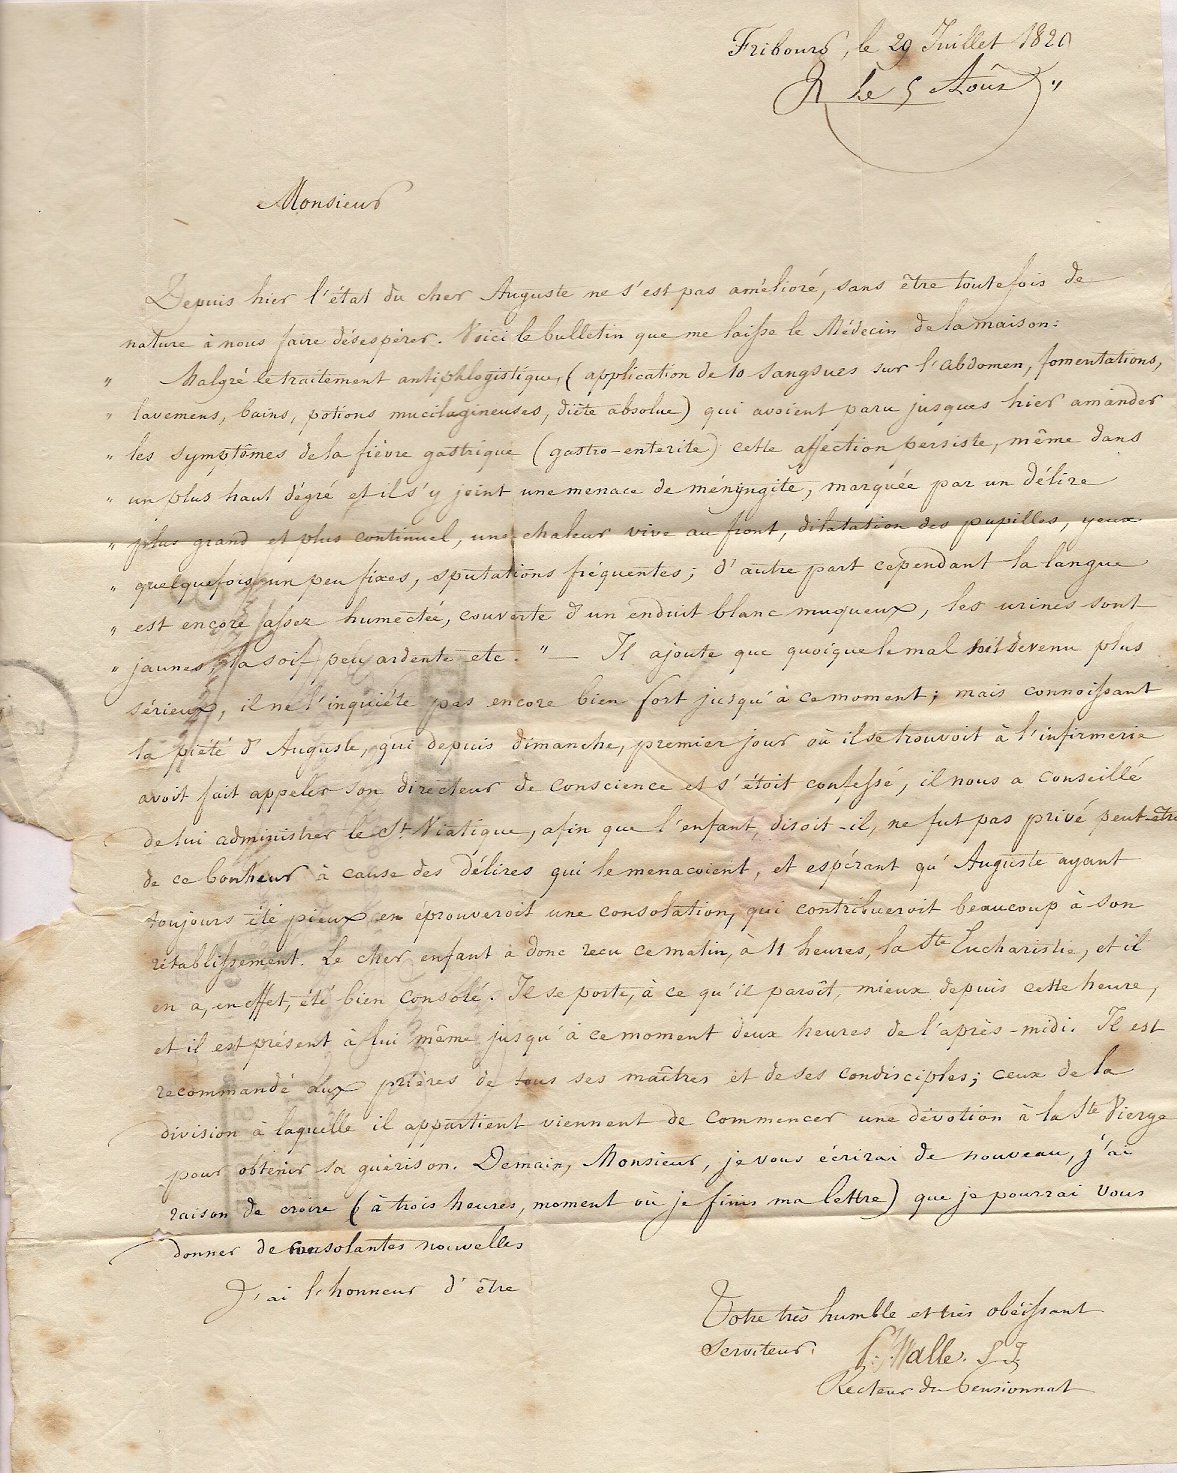 Fribourg, le 29 Juillet 182
R le 5 Août "
Monsieur
Depuis hier l'état du cher Auguste ne s'est pas amélioré, sans être toutefois de
nature à nous faire désespérer. Voici le bulletin que me laisse le Médecin de la maison:
" Malgré le traitement antiphlogistique, (application de 10 sangsues sur l'abdomen, fomentations,
" lavemens, bains, potions mucilagineuses, diète absolue) qui avoient paru jusques hier amander
" les symptômes de la fièvre gastrique (gastro-enterite) cette affection persiste, même dans
" un plus haut dégré et il s'y joint une menace de méningite, marquée par un délire
" plus grand et plus continuel, une chaleur vive au front, dilatation des pupilles, yeux
" quelquefois un peu fixes, sputations fréquentes; d'autre part cependant la langue
" est encore assez humectée, couverte d'un enduit blanc muqueux, les urines sont
" jaunes, la soif peu ardente etc. " — Il ajoute que quoique le mal soit devenu plus
sérieux, il ne l'inquiéte pas encore bien fort jusqu'à ce moment; mais connoissant
la piété d'Auguste, qui depuis dimanche, premier jour où il se trouvoit à l'infirmerie
avoit fait appeler son directeur de conscience et s'étoit confessé, il nous a conseillé
de lui administrer le St Viatique, afin que l'enfant, disoit-il, ne fut pas privé peut-être
de ce bonheur à cause des délires qui le menacoient, et espérant qu'Auguste ayant
toujours été pieux en éprouveroit une consolation, qui contribueroit beaucoup à son
rétablissement. Le cher enfant a donc recu ce matin, à 11 heures, la Ste Eucharistie, et il
en a, en effet, été bien consolé. Il se porte, à ce qu'il paroît, mieux depuis cette heure,
et il est présent à lui même jusqu'à ce moment deux heures de l'après-midi. Il est
recommandé aux prières de tous ses maîtres et de ses condisciples; ceux de la
division à laquelle il appartient viennent de commencer une dévotion à la Ste Vierge
pour obtenir sa guérison. Demain, Monsieur, je vous écrirai de nouveau, j'ai
raison de croire (à trois heures, moment où je finis ma lettre) que je pourrai vous
donner de consolantes nouvelles
J'ai l'honneur d'être
Votre très humble et très obéissant
Serviteur.
Galle. S J
Recteur du Pensionnat